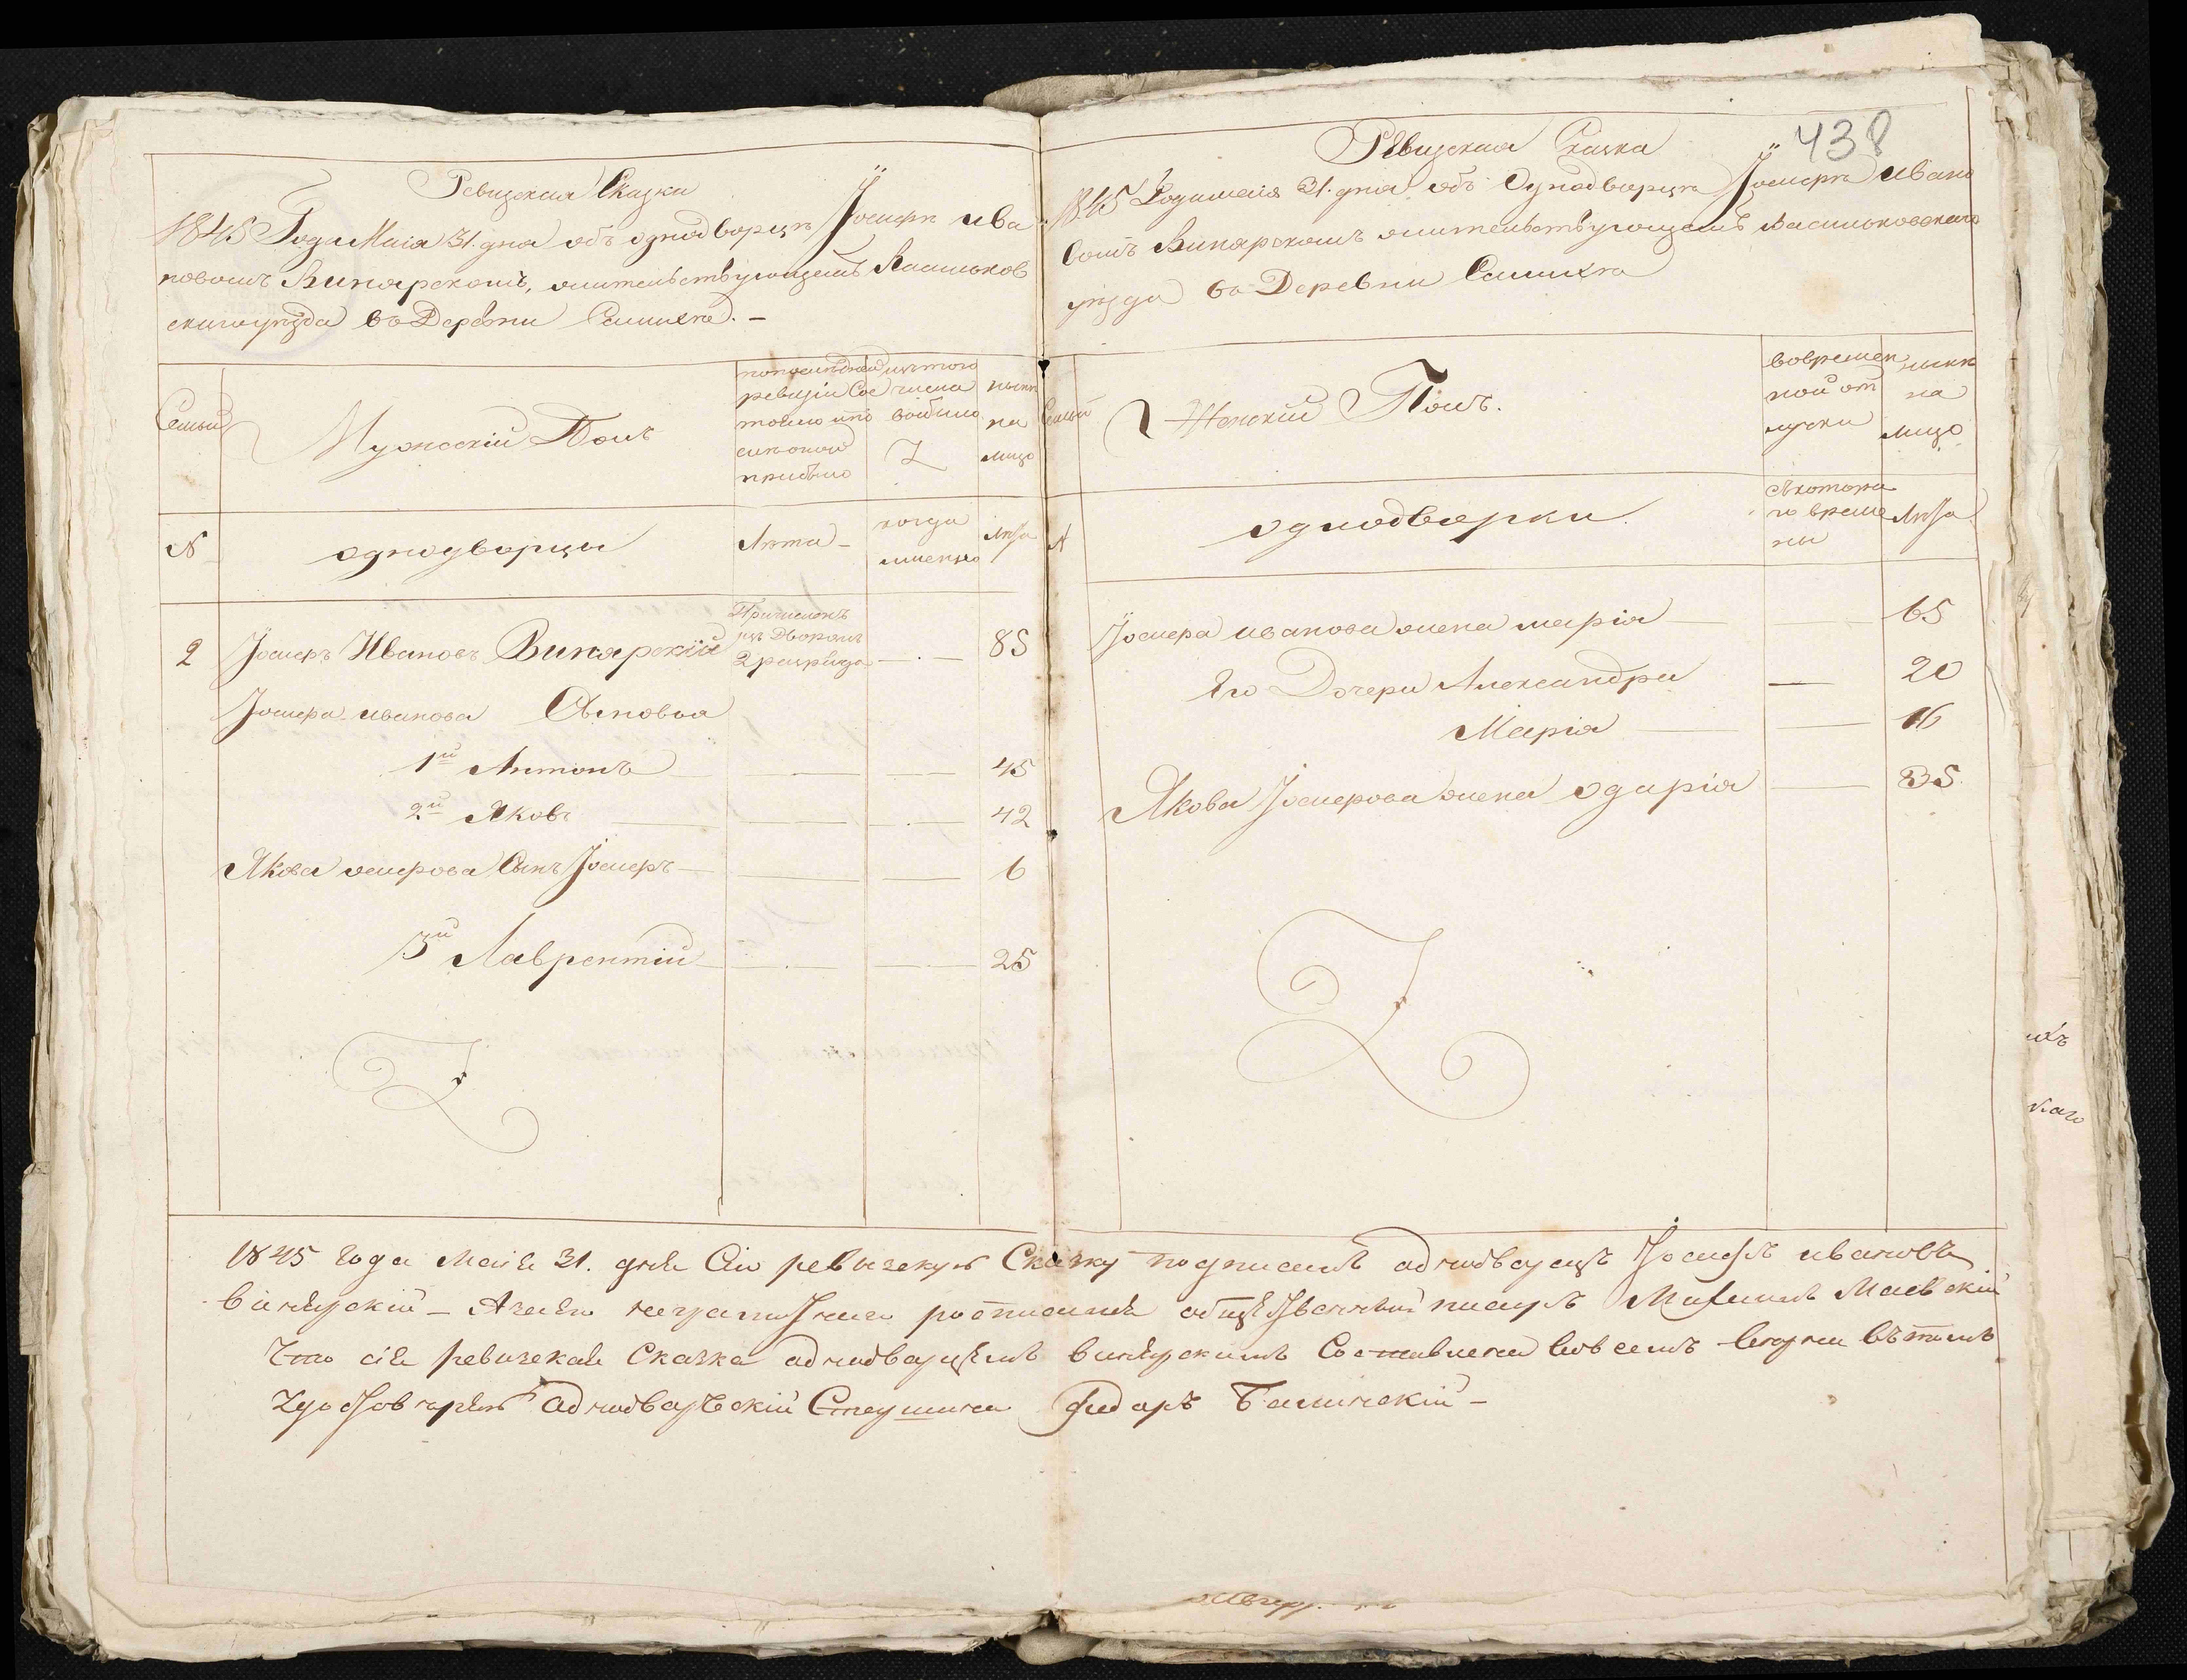 Ревизская Сказка
1845 Года Маiя 31. дня объ однодворцѣ Іосифѣ Ива
новомъ Винярскомъ, жительствующемъ Васильков
скагоуѣзда въ Деревни
Семьи
Мужескій Полъ
попослѣдней
ревизіи Сос
тояло ипо
прибыло
изтого
числа
выбыло
нынѣ
на
лицо
N
однодворцы
Лѣта
когда
именно
Лѣта
2 Іосифъ Ивановъ Винярскій
Причисленъ
2 разряда
85
Іосифа иванова Сыновья
1й Антонъ 45
2й Яковъ 42
Якова осифова Сынъ Іосифъ 6
3й Лаврентій 25
438
Ревизская Сказка
1845 Года маія 31. дня объ Однодворцѣ Іосифѣ Ивано
вомъ Винярскомъ жительствующемъ Васильковскаго
уѣзда въ Деревни
Семьи
Женскій Полъ.
вовремен
ной от
лучки
нынѣ
на
лицо
N
однодворки.
Скотора
го време
ны
Лѣта
Іосифа иванова жена марія 65
Его Дочери Александра 20
Марія 16
Якова Іосифова жена одарія 35
1845 Года Маія 31. дня Сію ревизскую Сказку подписалъ однодворецъ Іосифъ ивановъ
винярскій - Азаего неграмотнаго росписался общественный писарь Маевскій
Что сія ревизская Сказка однодворцемъ винярскимъ Составлена вовсемъ верна вътомъ
удостоверяю однодворческій Старшина Федоръ